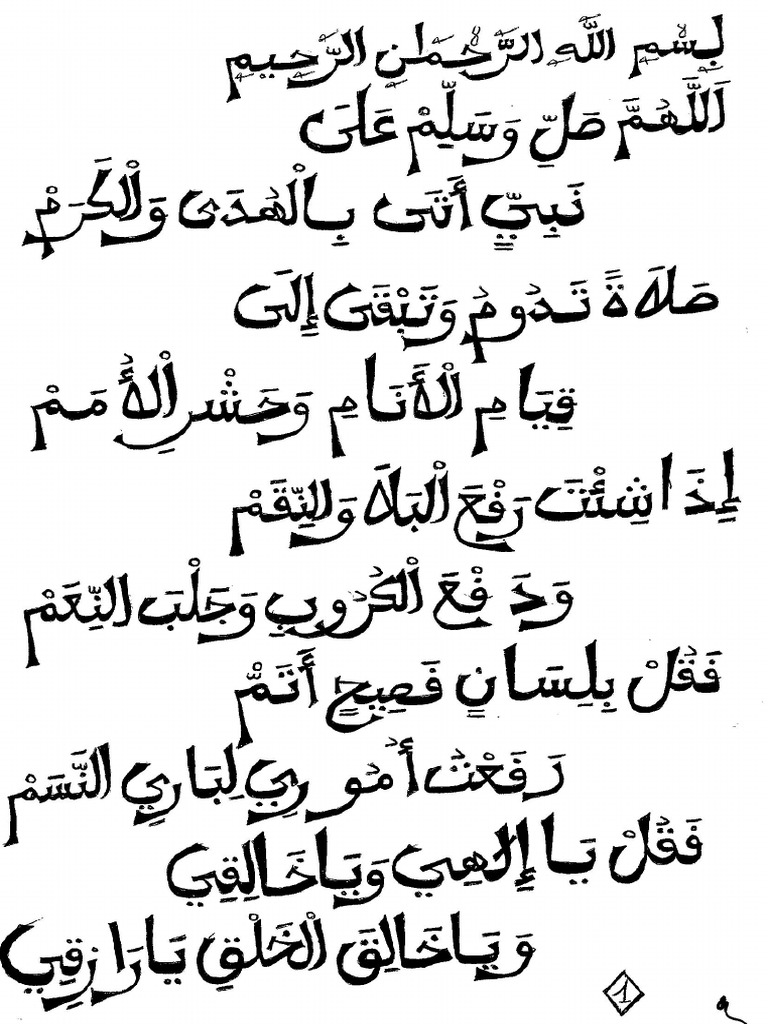 بِسْمِ اللَّهِ الرَّحْمَانِ الرَّحِيمِ
اَللَّهُمَّ صَلِّ وَسَلِّمْ عَلَى
نَبِيٍّ أَتَى بِالْهُدَى وَالْكَرَمْ
صَلَاةً تَدُومُ وَتَبْقَى إِلَى
قِيَامِ الْأَنَامِ وَحَشْرِ الْأُمَمْ
إِذَا شِئْتَ رَفْعَ الْبَلَا وَالنِّقَمْ
وَدَفْعَ الْكُرُوبِ وَجَلْبَ النِّعَمْ
فَقُلْ بِلِسَانٍ فَصِيحٍ أَتَمّْ
رَفَعْتُ أُمُورِي لِبَارِي النَّسَمْ
فَقُلْ يَا إِلَهِي وَيَا خَالِقِي
وَيَا خَالِقَ الْخَلْقِ يَا رَازِقِي
1